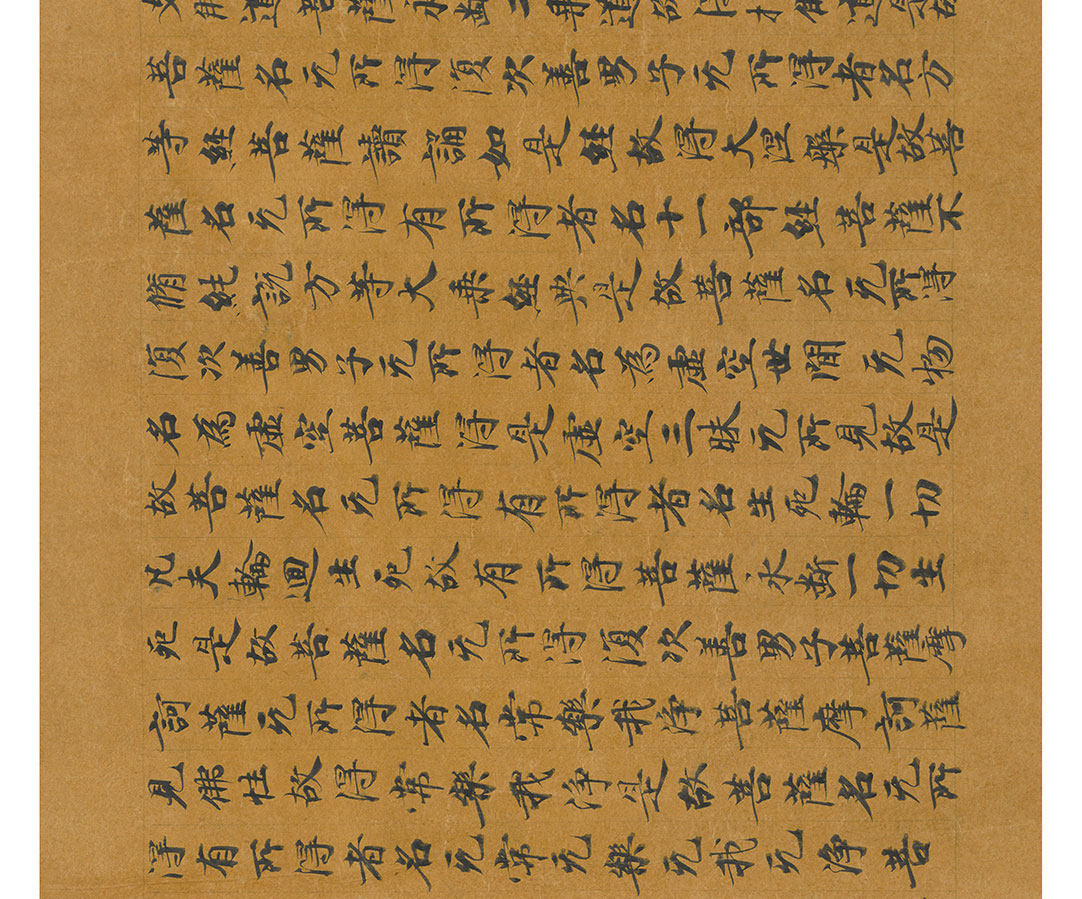 佛道菩薩永斷二道故得於佛道是故
菩薩名无所得復次善男子无所得者名方
等經菩薩讀誦如是經故得大涅槃是故菩
薩名无所得有所得者名十一部經菩薩不
脩純說方等大乘經典是故菩薩名无所得
復次善男子无所得者名為虛空世間无物
名為虛空菩薩得是虛空三昧无所見故是
故菩薩名无所得有所得者名生死輪一切
凡夫輪迴生死故有所得菩薩永斷一切生
死是故菩薩名无所得復次善男子菩薩摩
訶薩无所得者名常樂我淨菩薩摩訶薩
見佛性故得常樂我淨是故菩薩名无所
得有所得者名无常无樂无我无淨菩